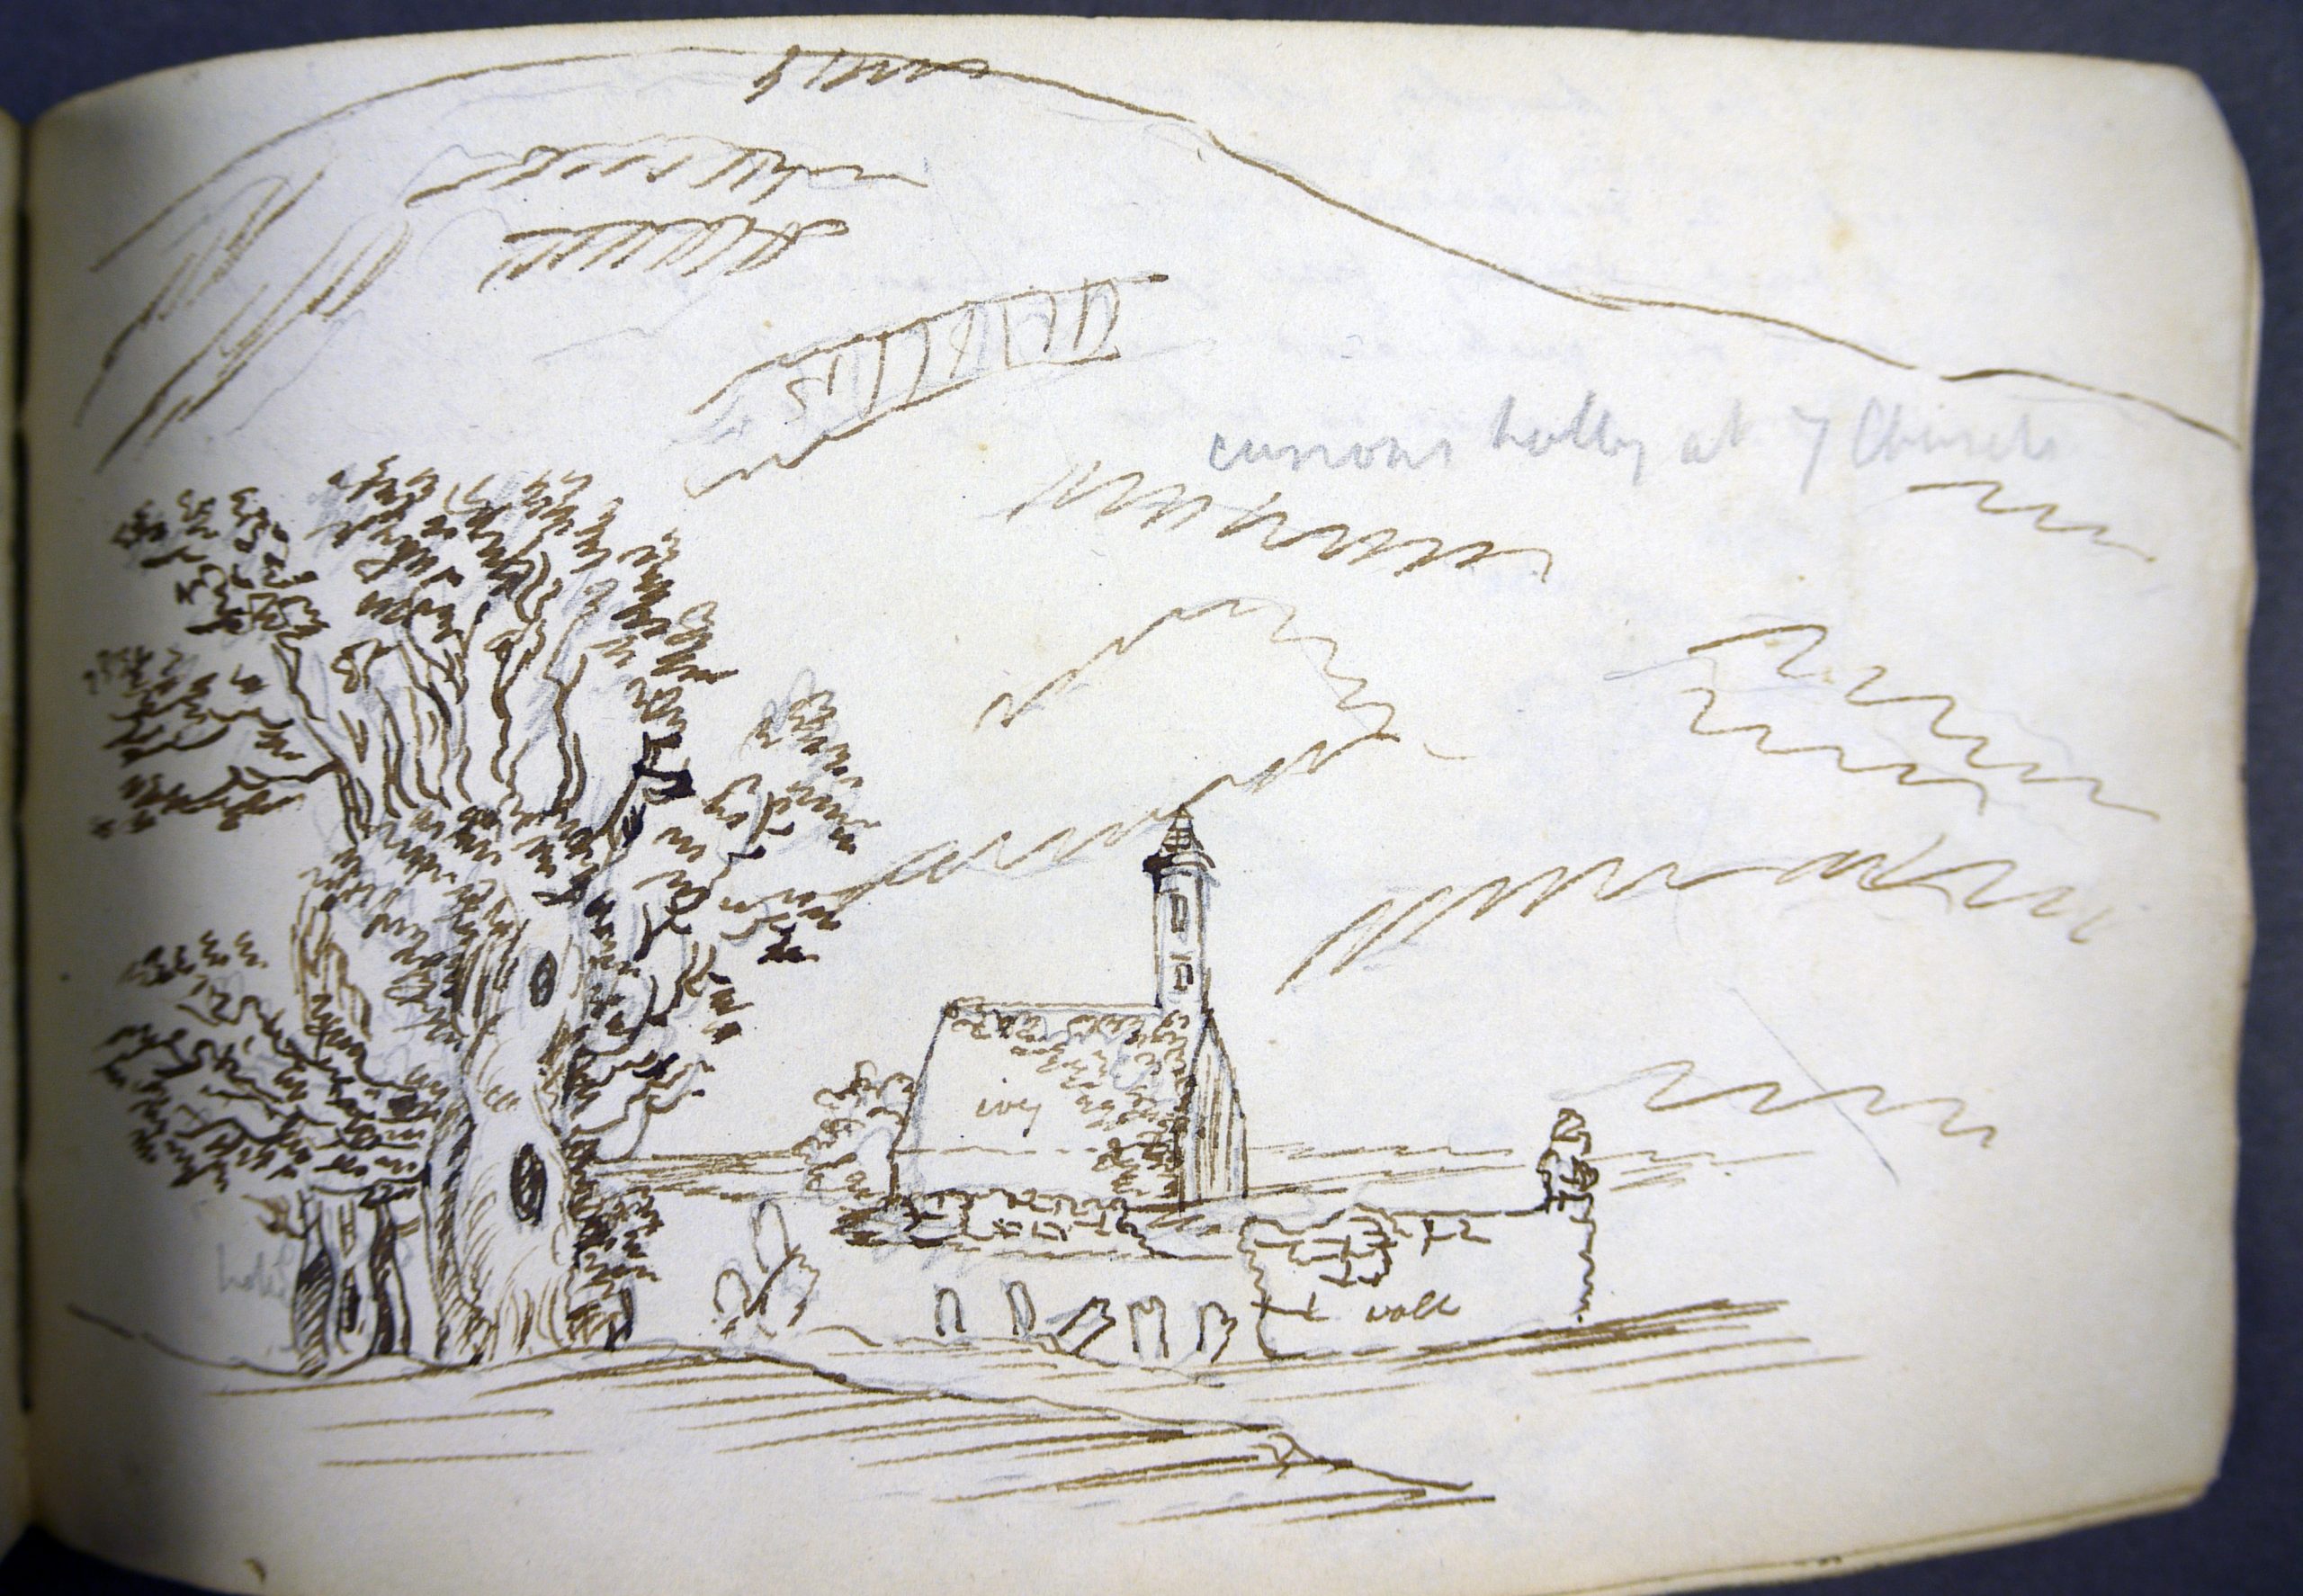 curious holly at 7 Church
ivy
wall